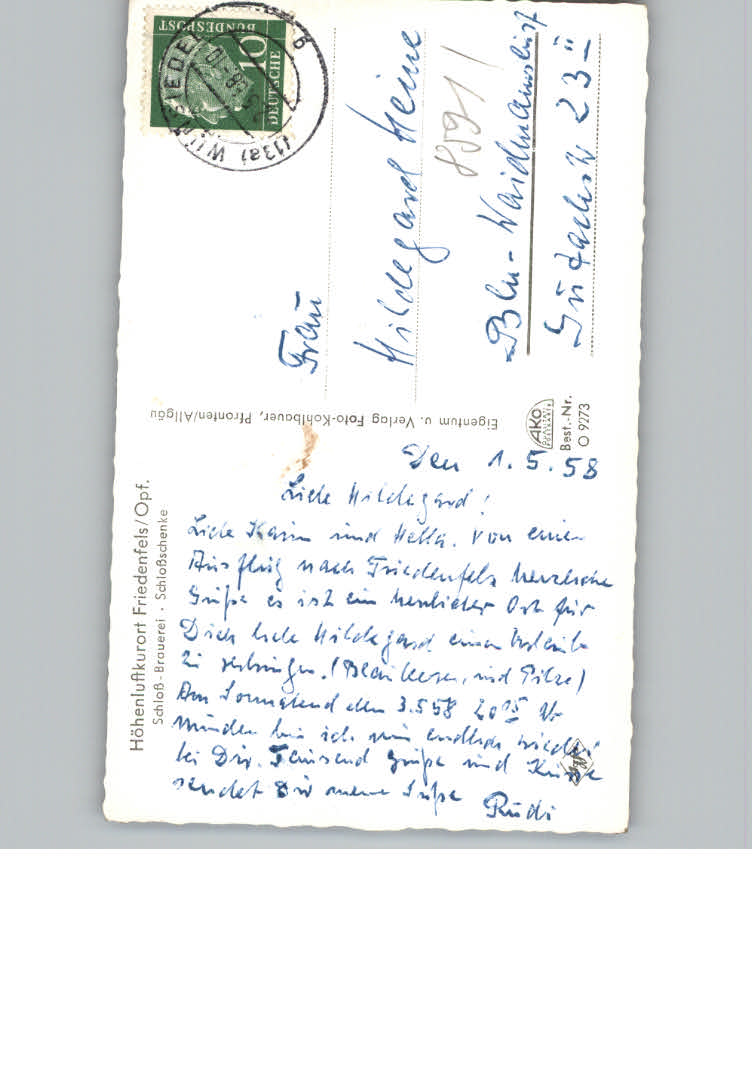 Höhenluftkurort Friedenfels/Opf.
Schloß-Brauerei · Schloßschenke
Den 1.5.58
Liebe Hildegard!
Liebe Karin und Hella. Von einem
Ausflug nach Friedenfels herzliche
Grüße es ist ein herrlicher Ort für
Dich liebe Hildegard einen Urlaub
zu verbringen. (Blaubeeren, und Pilze)
Am Sonnabend den 3.5.58 20 05 Uhr
München bin ich nun endlich wieder
bei Dir. Tausend Grüße und Küsse
sendet Dir meine Süße Rudi
Eigentum u. Verlag Foto-Kohlbauer, Pfronten/Allgäu
AKO
Best.-Nr.
O 9273
DEUTSCHE
BUNDESPOST
10
(13a) WUNSIEDEL
b
Frau
Hildegard Heine
Bln-Waidmannslust
23 II
Agfa